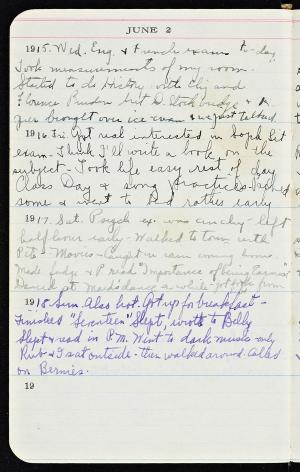 JUNE 2
1915. Wed. Eng. & French exams to-day.
Took measurements of my room.
Started to do History with Elij and
Florence but D. Stockbridge & H.
brought over ice cream & we just talked.
1916 Fri. Got real interested in Soph Lit
exam. Think I'll write a book on the
subject. Took life easy rest of day
Class Day & song practices.
some & went to bed rather early
1917. Sat. Psych ex. was cinchy - left
half hour early - Walked to town with
Pete - Movies - Caught in rain coming home.
Made fudge & P read "Importance of being Earnest"

1918 Sun. Alas hot. Got up for breakfast -
Finished "Seventeen" Slept, wrote to Billy
Slept & read in P.M. Went to dark music only
Rub & I sat outside - then walked around. Called
on Bernies.
19